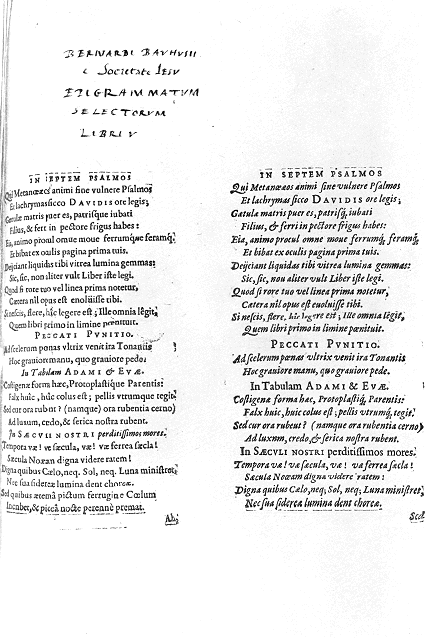 BERNARDI BAUHUSII
e Societate Iesu
EPIGRAMMATUM
SELECTORUM
LIBRI V
IN SEPTEM PSALMOS
Qui Metanœæos animi sine vulnere Psalmos
Et lachrymas sicco DAVIDIS ore legis;
Gatulæ matris puer es, patrisque iubati
Filius, & fert in pectore frigus habes:
Eia, animo procul omne moue ferrumque feramq́;
Et bibat ex oculis pagina prima tuis.
Deijciant liquidas tibi vitrea lumina gemmas:
Sic, sic, non aliter vult Liber iste legi.
Quod si rore tuo vel linea prima notetur,
Cætera nil opus est enoluisse tibi.
Si nescis, flere, hîc legere est; Ille omnia lêgit,
Quem libri primo in limine pœnituit.
PECCATI PVNITIO.
Ad scelerum pœnas vltrix venit ira Tonantis
Hoc grauiore manu, quo grauiore pede.
In Tabulam ADAMI & EVÆ.
Costigenæ forma hæc, Protoplastique Parentis:
Falx huic, huic colus est; pellis vtrumque tegit.
Sed cur ora rubent? (namque ora rubentia cerno)
Ad luxum, credo, & serica nostra rubent.
In SÆCVLI NOSTRI perditissimos mores.
Tempora væ! væ sæcula, væ! væ ferrea sæcla!
Sæcula Noxam digna videre ratem!
Digna quibus Cælo, neq; Sol, neq; Luna ministret
Nec sua sidereæ lumina dent choreæ.
Sed quibus æternâ pictum ferrugine Cœlum
Incubet, & piceâ nocte perenne premat.
Ah,
IN SEPTEM PSALMOS
Qui Metanœæos animi sine vulnere Psalmos
Et lachrymas sicco DAVIDIS ore legis;
Gatula matris puer es, patrisq́, iubati
Filius, & ferri in pectore frigus habes:
Eia, animo procul omne moue ferrumq́, feramq́,
Et bibat ex oculis pagina prima tuis.
Deijciant liquidas tibi vitrea lumina gemmas:
Sic, sic, non aliter vult Liber iste legi.
Quod si rore tuo vel linea prima notetur,
Cætera nil opus est euoluisse tibi.
Si nescis, flere, hic legere est; Ille omnia lêgit,
Quem libri primo in limine pœnituit.
PECCATI PVNITIO.
Ad scelerum pœnas vltrix venit ira Tonantis
Hoc grauiore manu, quo grauiore pede.
In Tabulam ADAMI & EVÆ.
Costigenæ forma hæc, Protoplastiq́, Parentis:
Falx huic, huic colus est; pellis vtrumq́, tegit.
Sed cur ora rubent? (namque ora rubentia cerno)
Ad luxum, credo, & serica nostra rubent.
In SÆCULI NOSTRI perditissimos mores.
Tempora væ! væ sæcula, væ! væ ferrea sæcla!
Sæcula Noxam digna videre ratem!
Digna quibus Cælo, neq; Sol, neq; Luna ministret,
Nec sua sidereæ lumina dent choreæ.
Sed